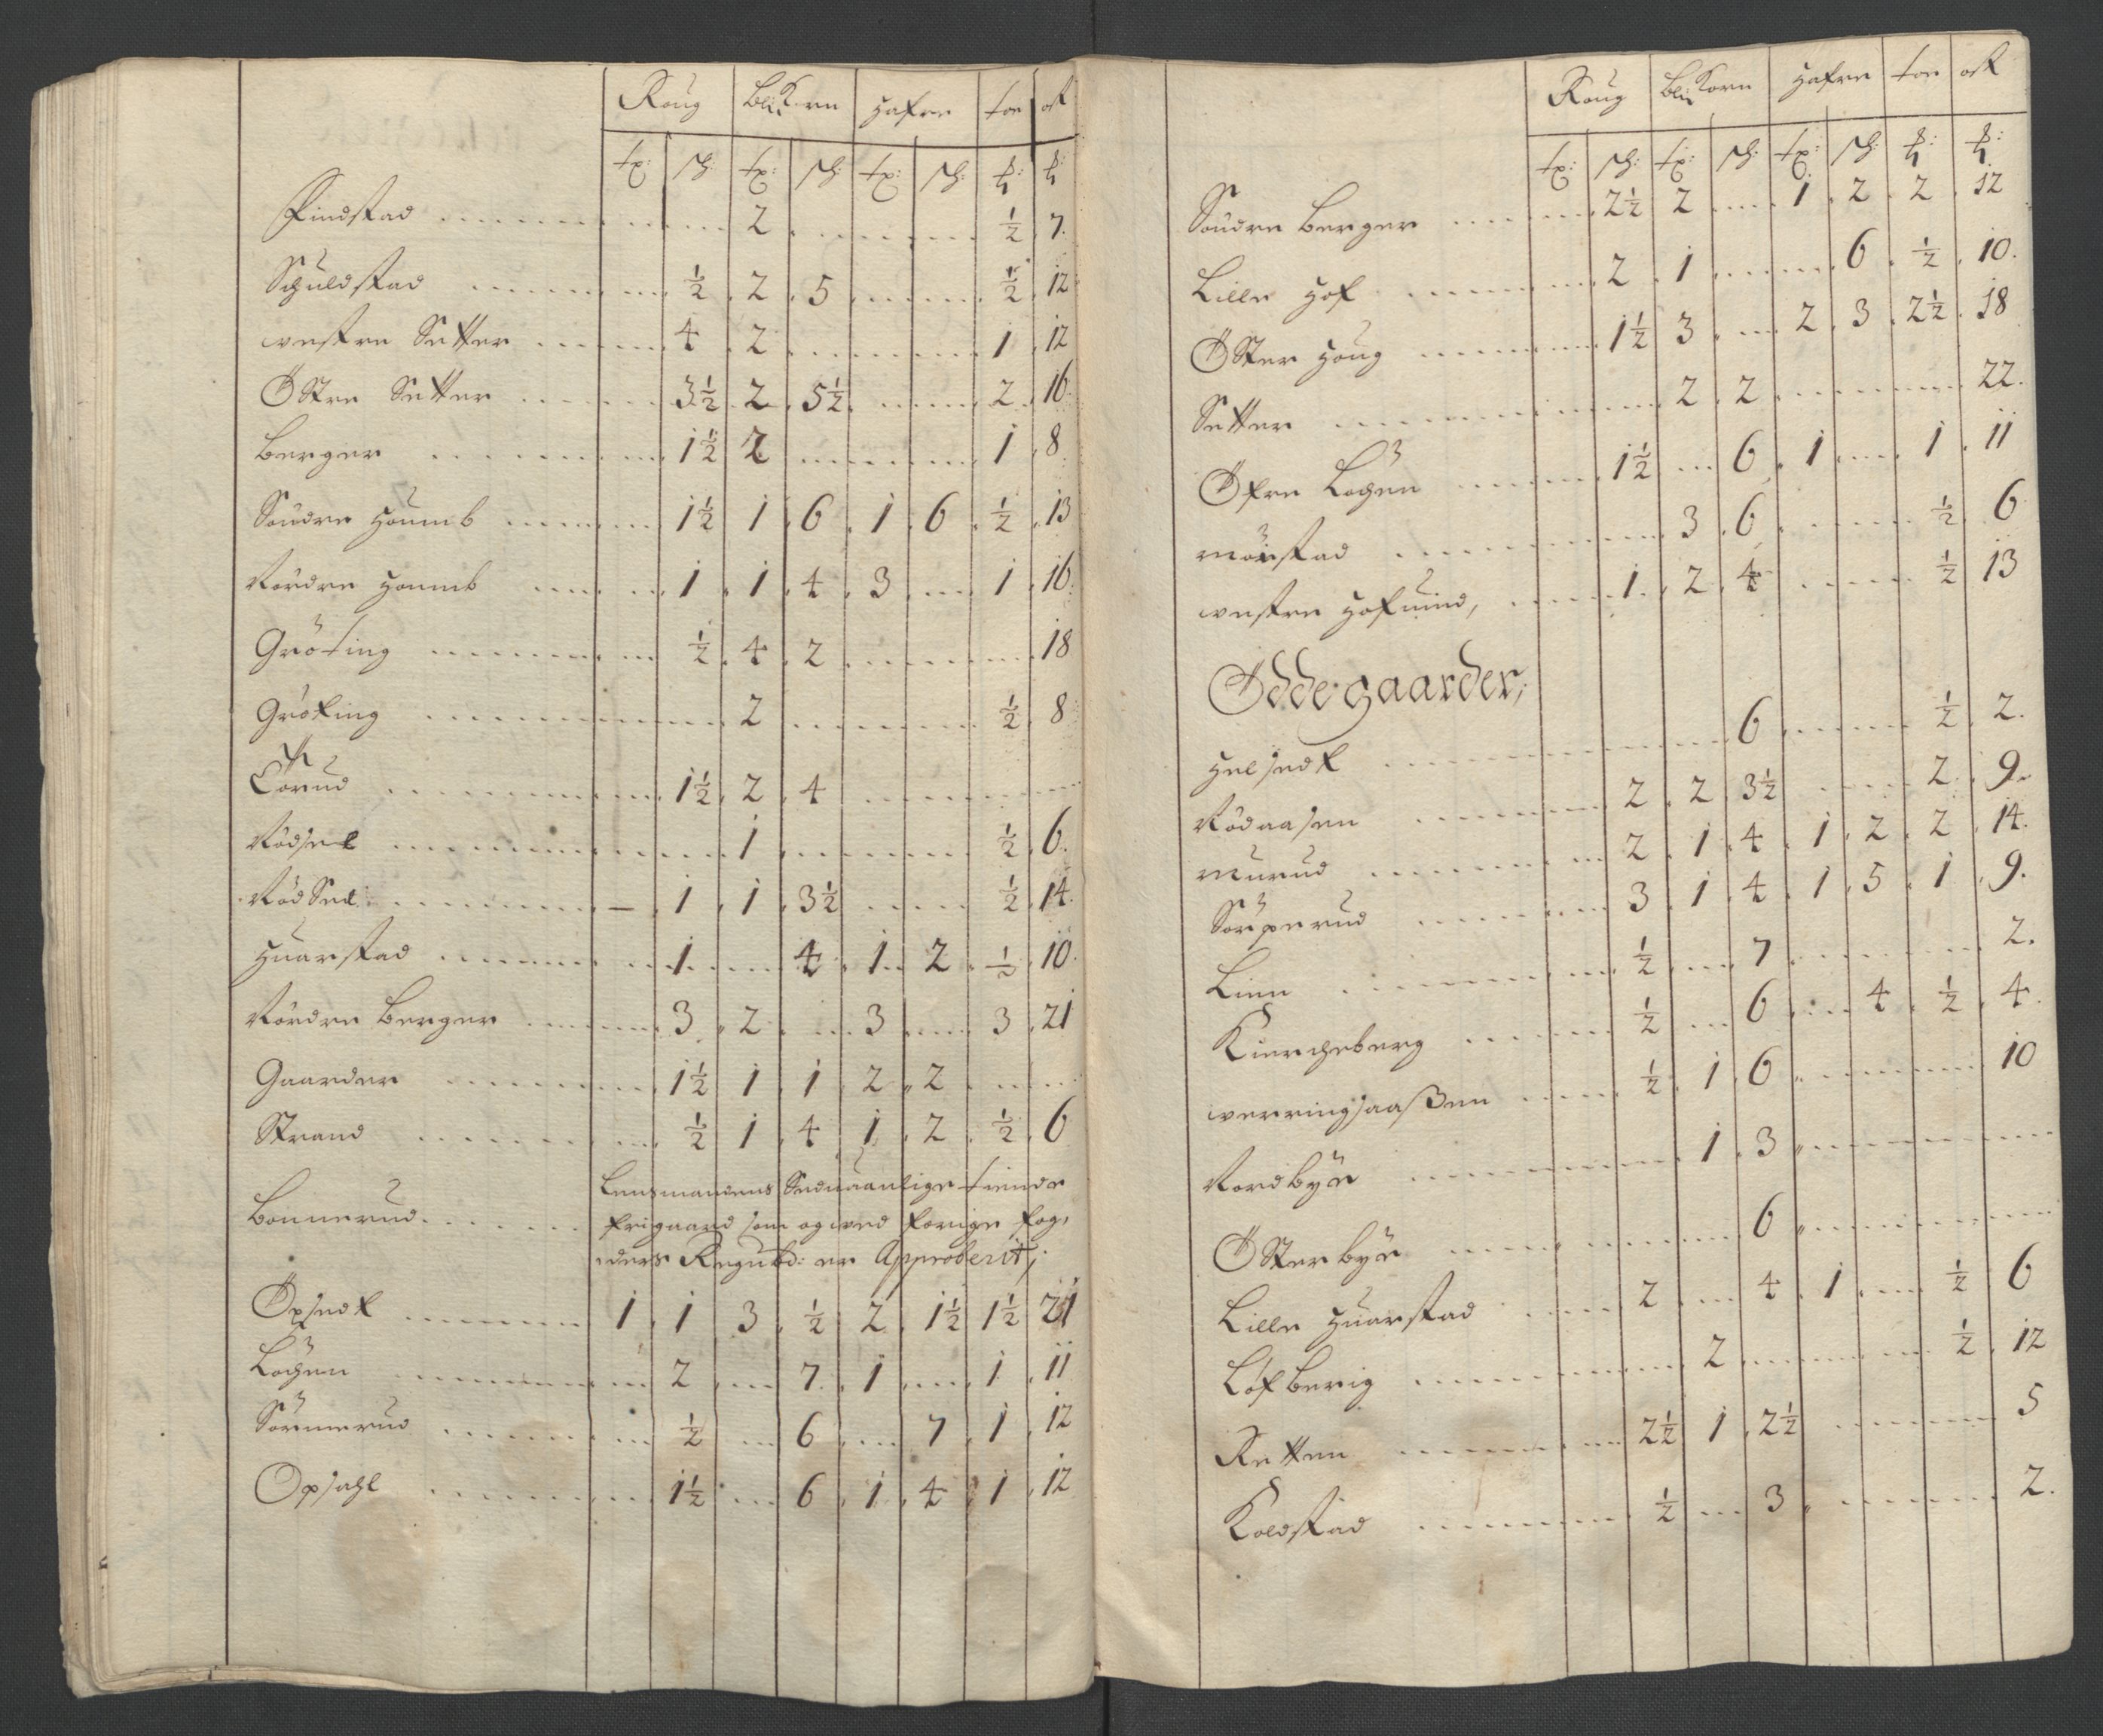 Roug Bl: Korn Hafre toe ost
tr: sk: tr: sk: tr: sk: ℔: ℔:
Findstad 2 ½ 7.
Schuldstad ½ 2 5 ½ 12
westre Setter 4 2 1 12
Østre Setter 3½ 2 5½ 2 16
Berger 1½ 2 1 8
Søndre Houmb 1½ 1 6 1 6 ½ 13
Nordre Houmb 1 1 4 3 1 16
Grøting ½ 4 2 18
Grøting 2 ½ 8
Torud 1½ 2 4
Rødsel 1 ½ 6.
Rød Sel 1 1 3½ ½ 14.
Huarstad 1 4 1 2 ½ 10.
Nordre Berger 3 2 3 3 21
Gaarder 1½ 1 1 2 2
Strand ½ 1 4 1 2 ½ 6
Lensmandens Seduaanlige tiende
Bonnerud frigaard som og ved forige fog,
ders Regnsk: er Approberit;
Opsedt 1 1 3 ½ 2 1½ 1½ 21
Løgen 2 7 1 1 11
Sønnerud ½ 6 7 1 12
Opsahl 1½ 6 1 4 1 12
Roug Bl: Korn Hafre toe ost
tr: sk: tr: sk: tr: sk: ℔: ℔:
Søndre Berger 2½ 2 1 2 2 12
Lille Hof 2 1 6 ½ 10.
Øster Houg 1½ 3 2 3 2½ 18
Setter 2 2 22.
Øfre Løgen 1½ 6 1 1 11
Mønstad 3 6 ½ 6
westre Hofuind, 1 2 4 ½ 13
Ødde gaarder;
Helsedt 6 ½ 2.
Rødaasen 2 2 3½ 2 9.
Murud 2 1 4 1 2 2 14.
Sørperud 3 1 4 1 5 1 9.
Linn ½ 7 2.
Kiercheberg ½ 6 4 ½ 4.
werringsaaßen ½ 1 6 10
Nordbye 1 3
Østerbye 6
Lille Huarstad 2 4 1 ½ 6
Løfberig 2 ½ 12
Retten 2½ 1 2½ 5
Koldstad ½ 3 2.